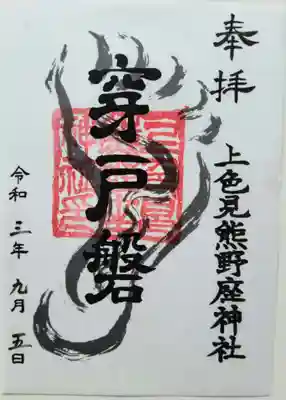 奉拝
上色見熊野座神社
穿戸磐
令和三年九月五日